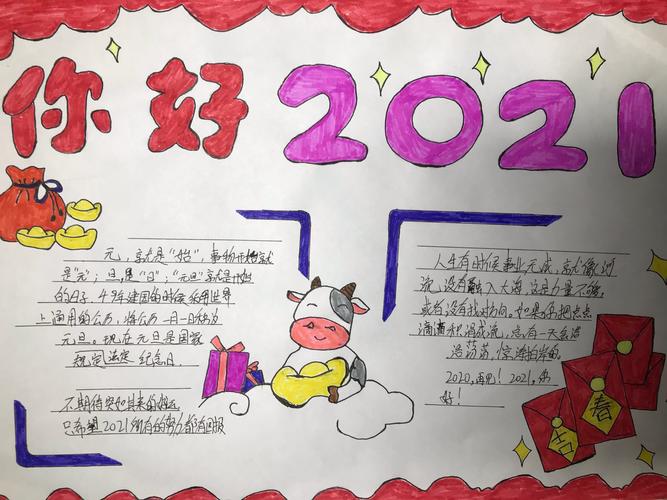 你好2021
元，就是"始"，事物开始就
是"元"；旦，是"日"；"元旦"就是开始
的日子。49年建国的时候利用世界
上通用的公历，将公历一月一日称为
元旦。现在元旦是国家
规定法定纪念日。
不期待突如其来的好运
只希望2021所有的努力都有回报
人生有时候事业无成，就像河
流，没有融入大海，这是力量不够，
或者没有找对方向。如果你把点点
滴滴积涓成流，总有一天会浩
浩荡荡，惊涛拍岸的。
2020，再见！2021，你
好！
吉
春